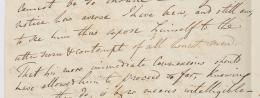 cannot be
notice has arose I have been, and still am
to see him thus expose himself to the
utter scorn & contempt of all honest men.
That his more immediate Connexions should
have allowed him to proceed so far knowing
by no means intelligible